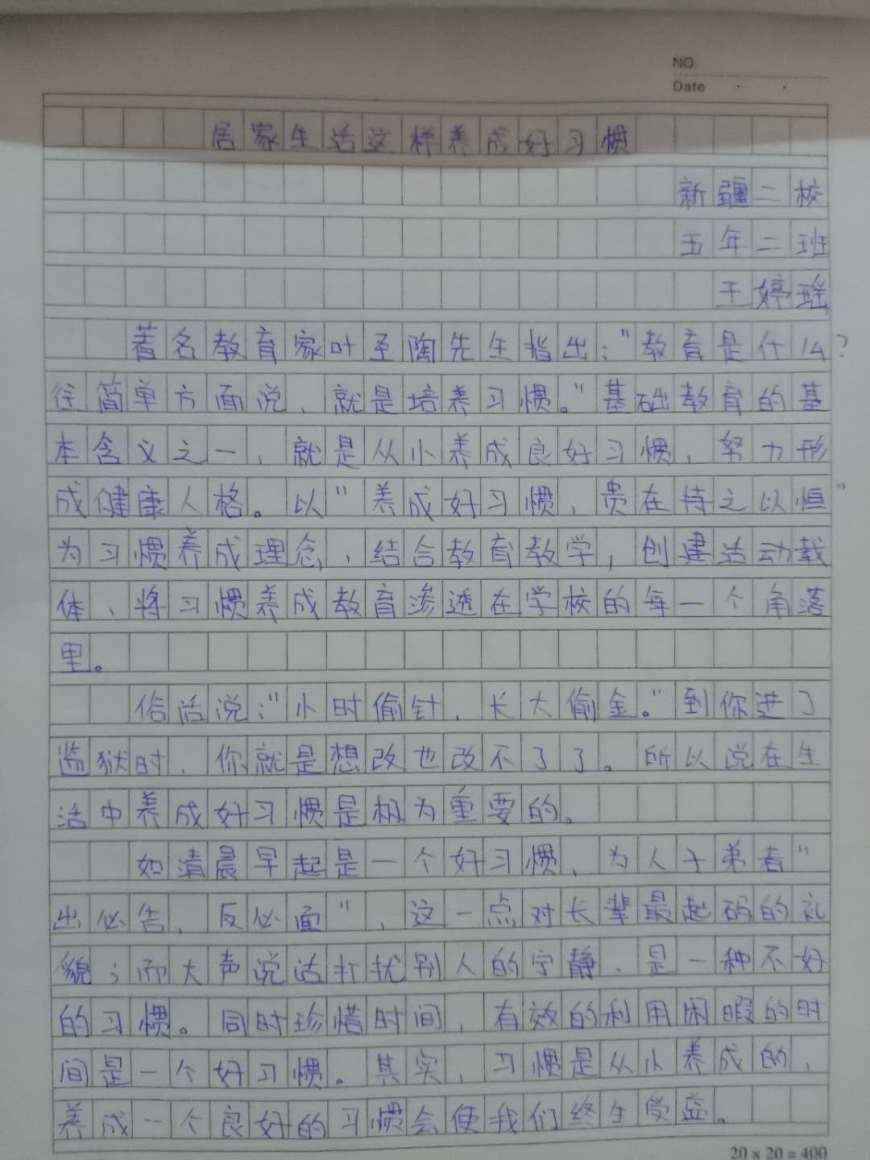 NO.
Date
居家生活这样养成好习惯
新疆二校
五年二班
王婷瑶
著名教育家叶圣陶先生指出：“教育是什么？
往简单方面说，就是培养习惯。”基础教育的基
本含义之一，就是从小养成良好习惯，努力形
成健康人格。以“养成好习惯，贵在持之以恒”
为习惯养成理念，结合教育教学，创建活动载
体，将习惯养成教育渗透在学校的每一个角落
里。
俗话说：“小时偷针，长大偷金。”到你进了
监狱时，你就是想改也改不了了。所以说在生
活中养成好习惯是相为重要的。
如清晨早起是一个好习惯，为人子弟者“
出必告，反必面”，这一点对长辈最起码的礼
貌；而大声说话打扰别人的宁静，是一种不好
的习惯。同时珍惜时间，有效的利用闲暇的时
间是一个好习惯。其实，习惯是从小养成的，
养成一个良好的习惯会使我们终生受益。
20 x 20 = 400